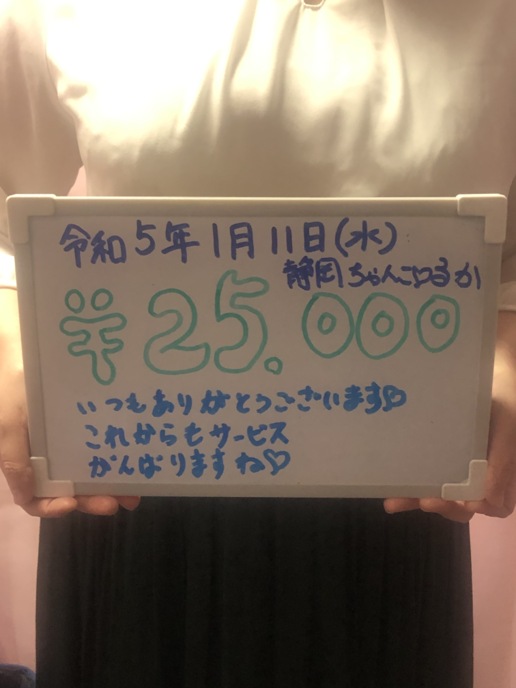 令和5年1月11日(水)
静岡ちゃんこ♡るか
¥25.000
いつもありがとうございます♡
これからもサービス
がんばりますね♡